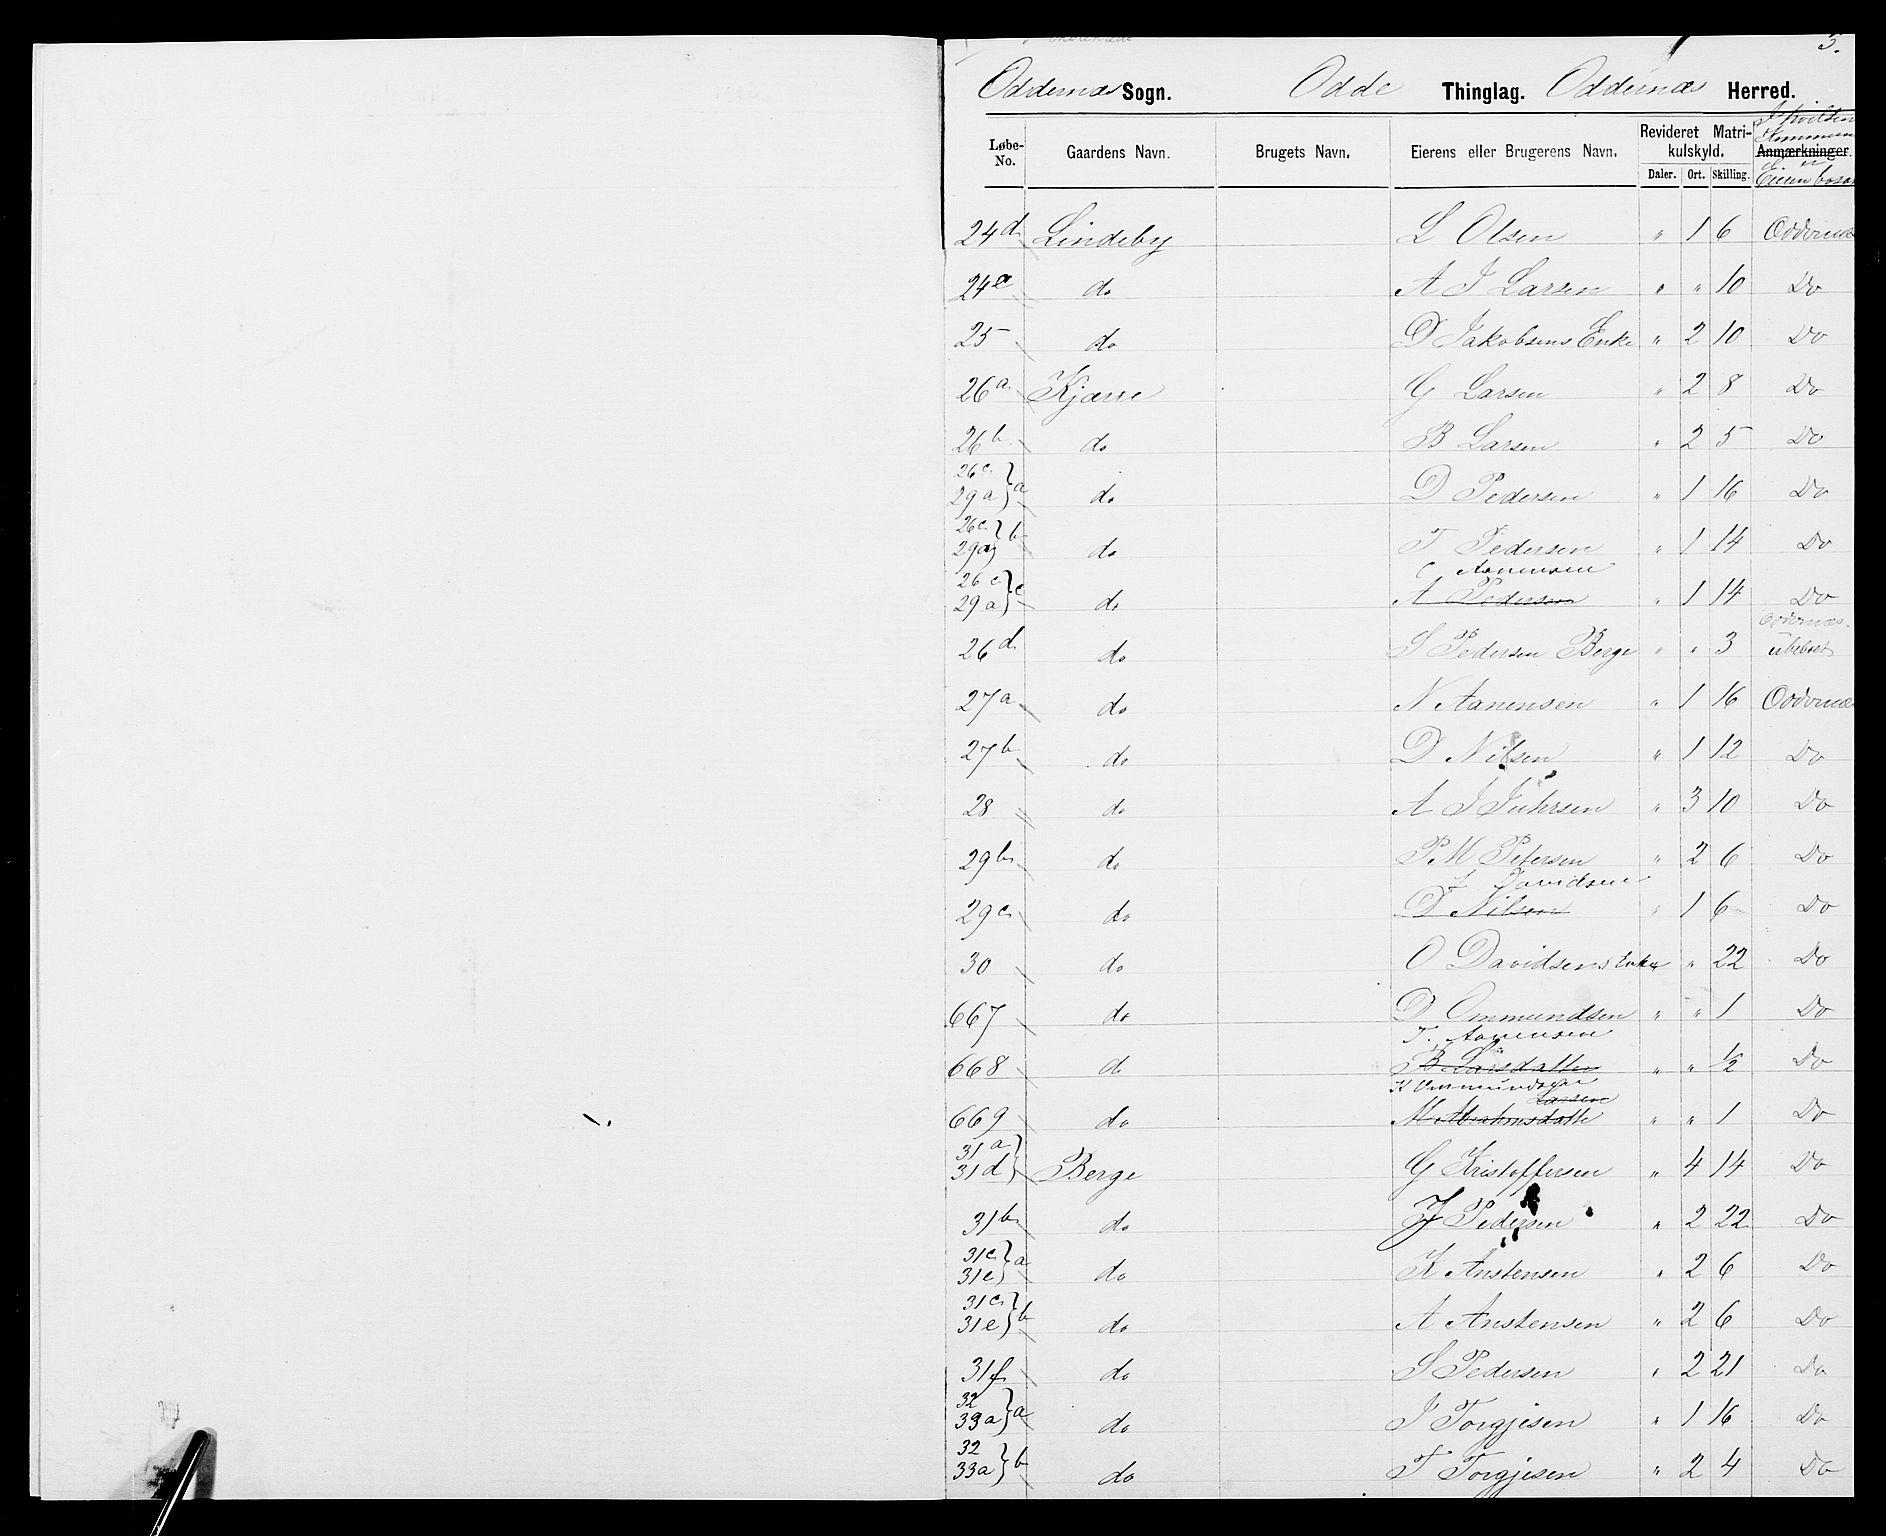 3.
Oddernæs Sogn. Odde Thinglag. Oddernæs Herred.
Løbe-No. Gaardens Navn. Brugets Navn. Eierens eller Brugerens Navn. Revideret Matrikulskyld. Daler. Ort. Skilling. Anmærkninger. I hvilken
24d Lindeby L Olsen " 1 6 Oddernæs
24e do A J Larsen " " 10 Do
25 do D Jakobsens Enke " 2 10 Do
26a Kjærre G Larsen " 2 8 Do
26b do B Larsen " 2 5 Do
26c 29a } a do D Pedersen " 1 16 Do
26c 29a } b do T Pedersen " 1 14 Do
C Aanensen
26c 29a } c do A Pedersen " 1 14 Do
Oddernæs.
26d do S Pedersen Berge " " 3 ubeboet
27a do N Aanensen " 1 16 Oddernæs
27b do D Nilsen " 1 12 Do
28 do A J Fuhrsen " 3 10 Do
29b do P M Petersen " 2 6 Do
Davidsen
29c do D Nilsen " 1 6 Do
30 do O Davidsens Enke " " 22 Do
667 do D Ommundsen " " 1 Do
T. Aanensen
668 do B Larsdatter " " 1/2 Do
K Ommundsen
Larsen
669 do M Abrahmsdatte " " 1 Do
31a 31d } Berge G Kristoffersen " 4 14 Do
31b do J Pedersen " 2 22 Do
31c 31e } a do K Anstensen " 2 6 Do
31c 31e } b do A Anstensen " 2 6 Do
31f do S Pedersen " 2 21 Do
32 33a } a do J Torgjesen " 1 16 Do
32 33a } b do T Torgjesen " 2 4 Do